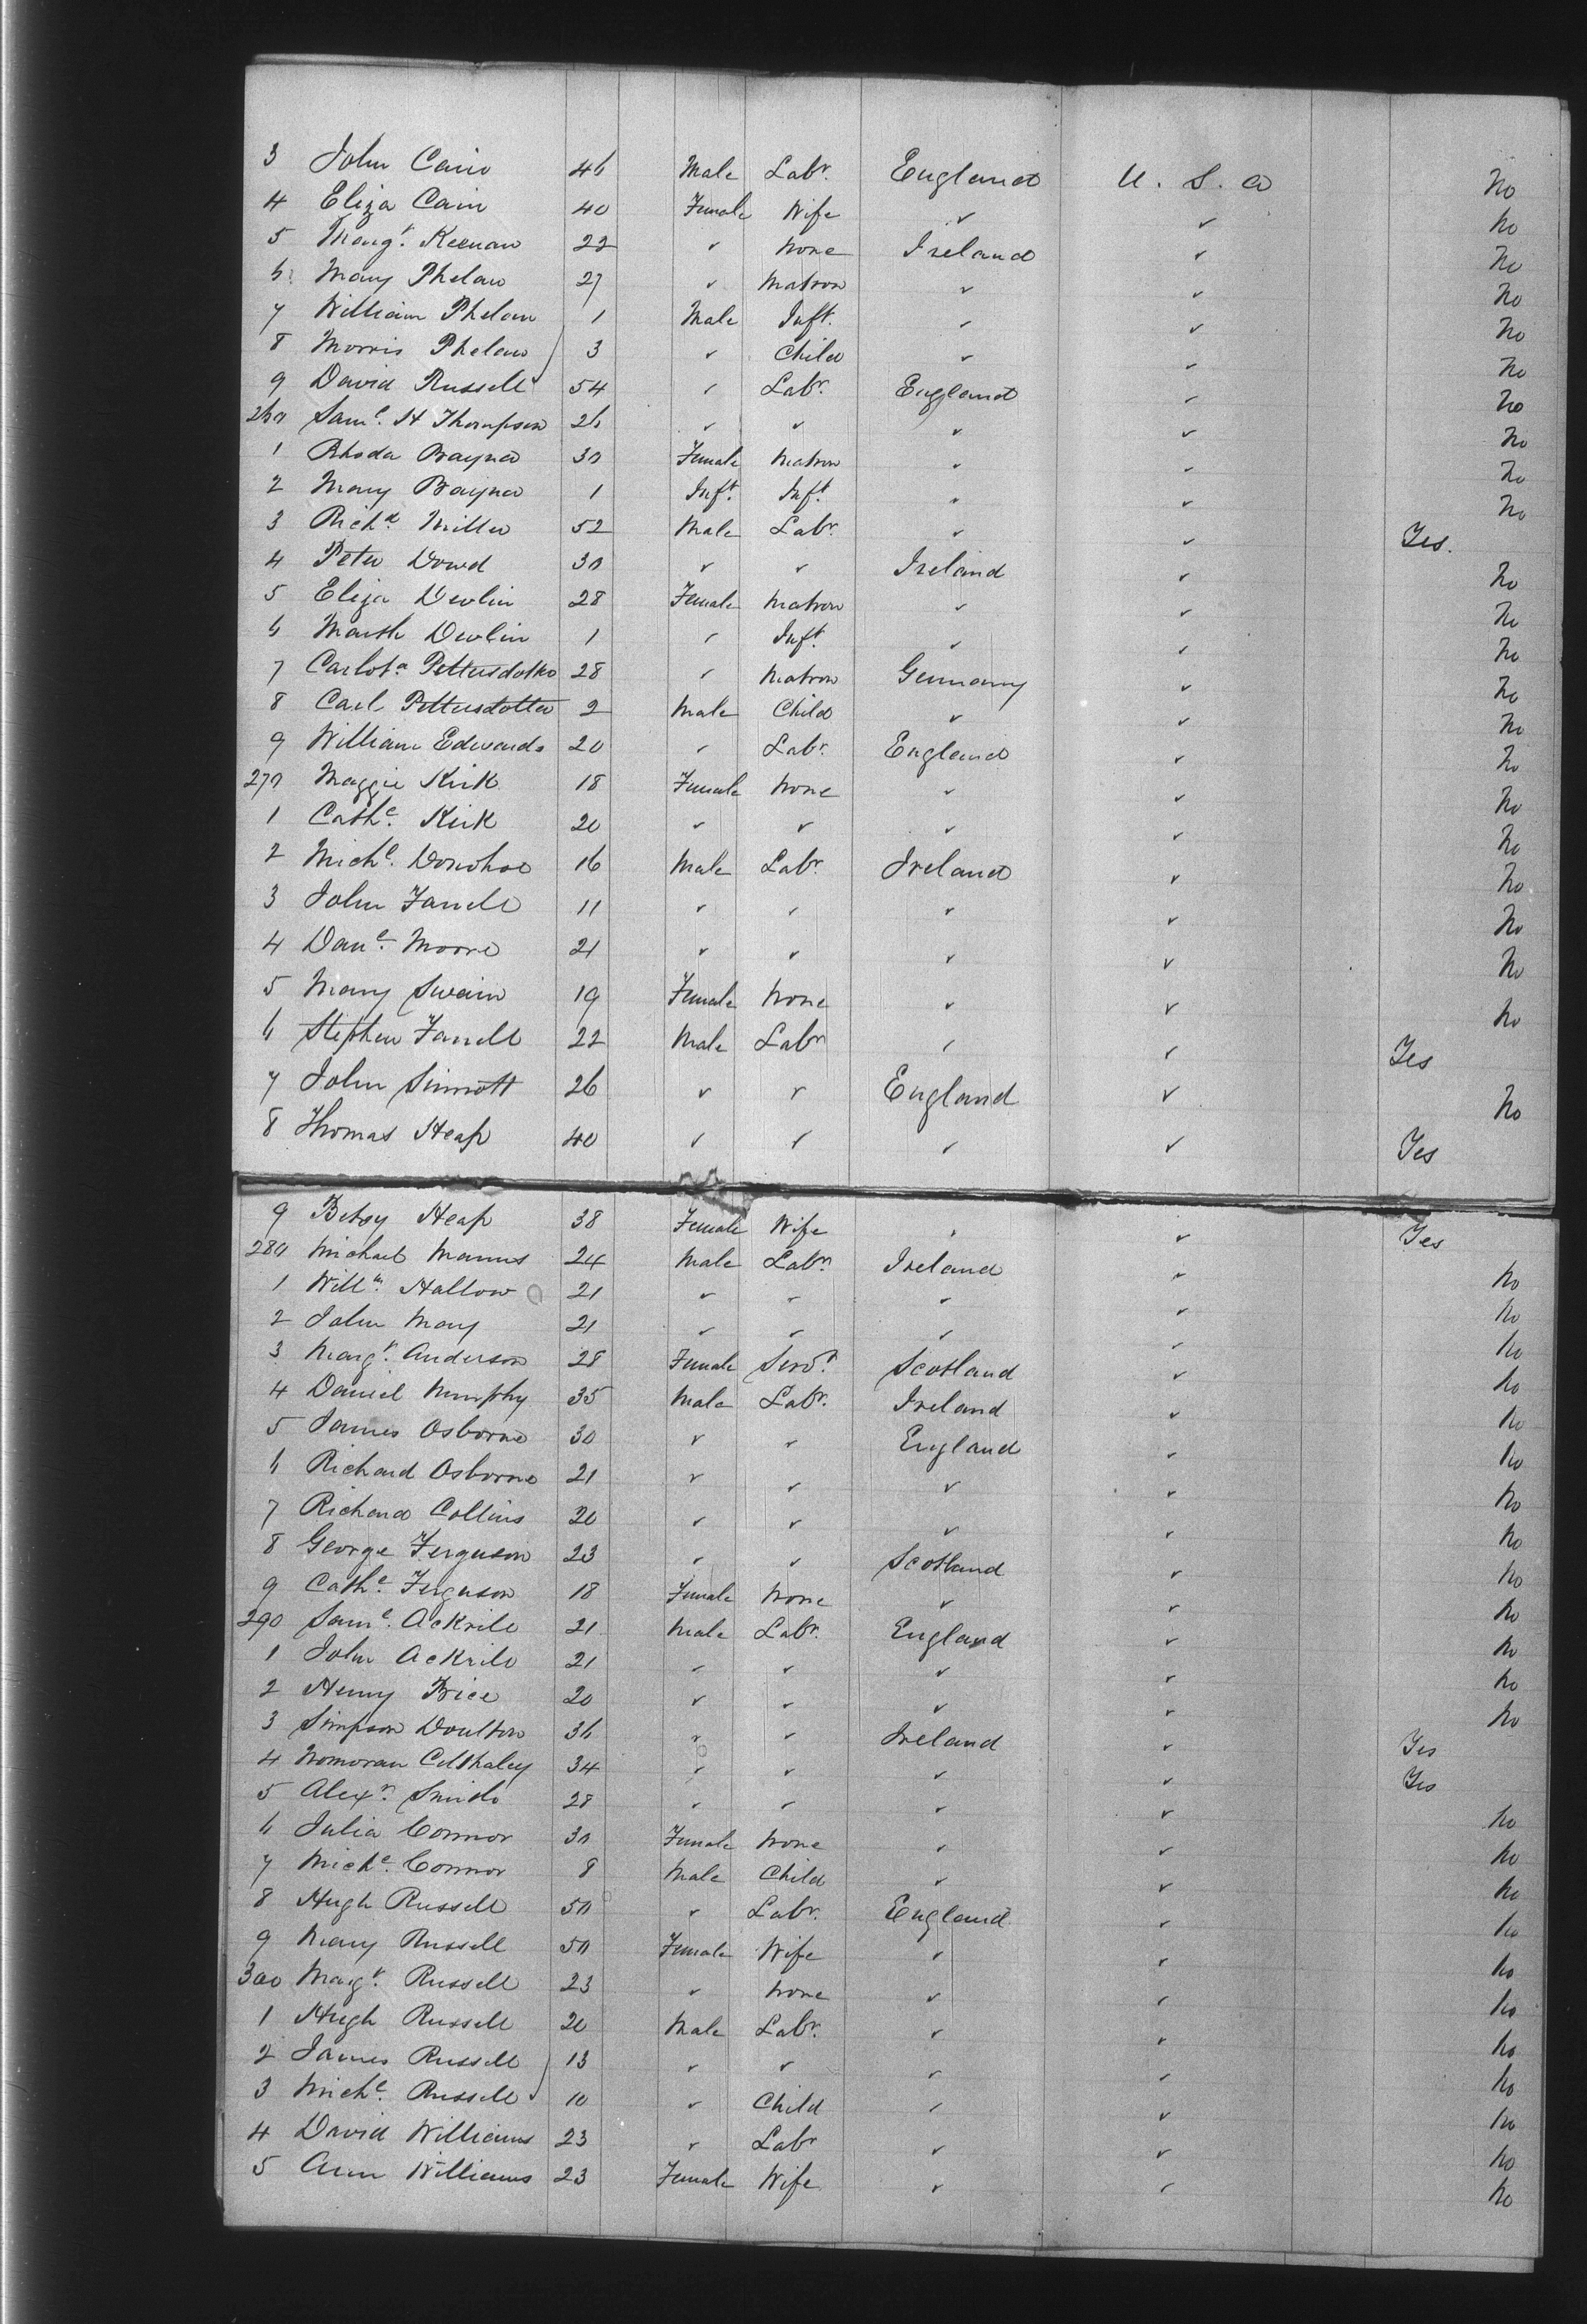 3 John Cain 46 Male Labr. England U. S. a No
4 Eliza Cain 40 Female Wife " " No
5 Margt. Keenan 22 " None Ireland " No
6 Mary Phelan 27 " Matron " " No
7 William Phelan 1 Male Inft. " " No
8 Morris Phelan 3 " Child " " No
9 David Russell 54 " Labr. England " No
260 Saml. H Thompson 26 " " " " No
1 Rhoda 30 Female Matron " " No
2 Mary 1 Inft. Inft. " " No
3 Richd. Miller 52 Male Labr. " " Yes.
4 Peter Dowd 30 " " Ireland " No
5 Eliza Devlin 28 Female Matron " " No
6 Devlin 1 " Inft. " " No
7 Carlota. Pettersdotter 28 " Matron Germany " No
8 Carl Pettersdotter 2 Male Child " " No
9 William Edwards 20 " Labr. England " No
270 Maggie Kirk 18 Female None " " No
1 Cathe. Kirk 20 " " " " No
2 Michl. Donohoe 16 Male Labr. Ireland " No
3 John Farrell 11 " " " " No
4 Danl. Moore 21 " " " " No
5 Mary Swain 19 Female None " " No
6 Stephen Farrell 22 Male Labr " " Yes
7 John Sinnott 26 " " England " No
8 Thomas Heap 40 " " " " Yes
9 Betsy Heap 38 Female Wife " " Yes
280 Michael Manus 24 Male Labr. Ireland " No
1 Willm. Hallow 21 " " " " No
2 John May 21 " " " " No
3 Margt. Anderson 28 Female Servt. Scotland " No
4 Daniel Murphy 35 Male Labr. Ireland " No
5 James Osborne 30 " " England " No
6 Richard Osborne 21 " " " " No
7 Richard Collins 20 " " " " No
8 George Ferguson 23 " " Scotland " No
9 Cathe. Ferguson 18 Female None " " No
290 Saml. Ackrill 21 Male Labr. England " No
1 John Ackrill 21 " " " " No
2 Henry Price 20 " " " " No
3 Simpson Doulton 36 " " Ireland " Yes
4 34 " " " " Yes
5 Alexr. 28 " " " " No
6 Julia Connor 30 Female None " " No
7 Michl. Connor 8 Male Child " " No
8 Hugh Russell 50 " Labr. England " No
9 Mary Russell 50 Female Wife " " No
300 Margt. Russell 23 " None " " No
1 Hugh Russell 20 Male Labr. " " No
2 James Russell 13 " " " " No
3 Michl. Russell 10 " Child " " No
4 David Williams 23 " Labr " " No
5 Ann Williams 23 Female Wife " " No